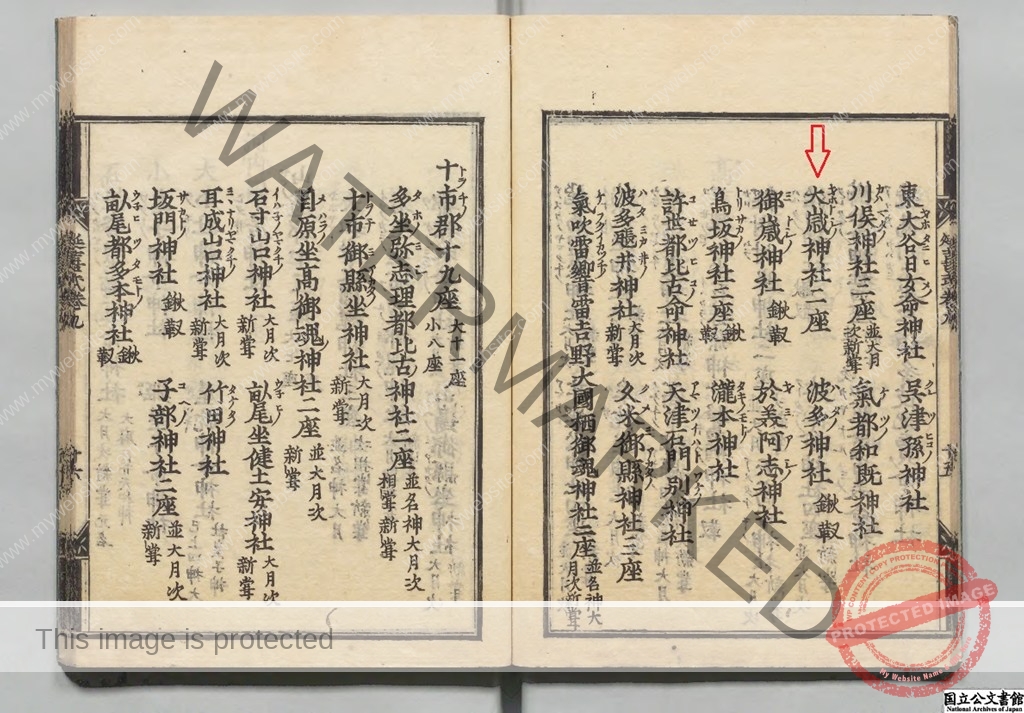 東大谷日女命神社 呉津孫神社
川俣神社三座 並大月次新甞 氣都和既神社
大歳神社二座 波多神社 鍬靫
御歳神社 鍬靫 於美阿志神社
鳥坂神社二座 鍬靫 瀧本神社
許世都比古命神社 天津石門別神社
波多甕井神社 大月次新甞 久米御縣神社三座
氣吹雷響雷吉野大國栖御魂神社二座 並名神大月次新甞
十市郡十九座 大十一座 小八座
多坐弥志理都比古神社二座 並名神大月次相甞新甞
十市御縣坐神社 大月次新甞
目原坐高御魂神社二座 並大月次新甞
石寸山口神社 大月次新甞 畝尾坐健土安神社 大月次新甞
耳成山口神社 大月次新甞 竹田神社
坂門神社 鍬靫 子部神社二座 並大月次新甞
畝尾都多本神社 鍬靫
WATERMARKED
This image is protected
COPYRIGHT
PROTECTED IMAGE
My Website Name
www.mywebsite.com
国立公文書館
National Archives of Japan